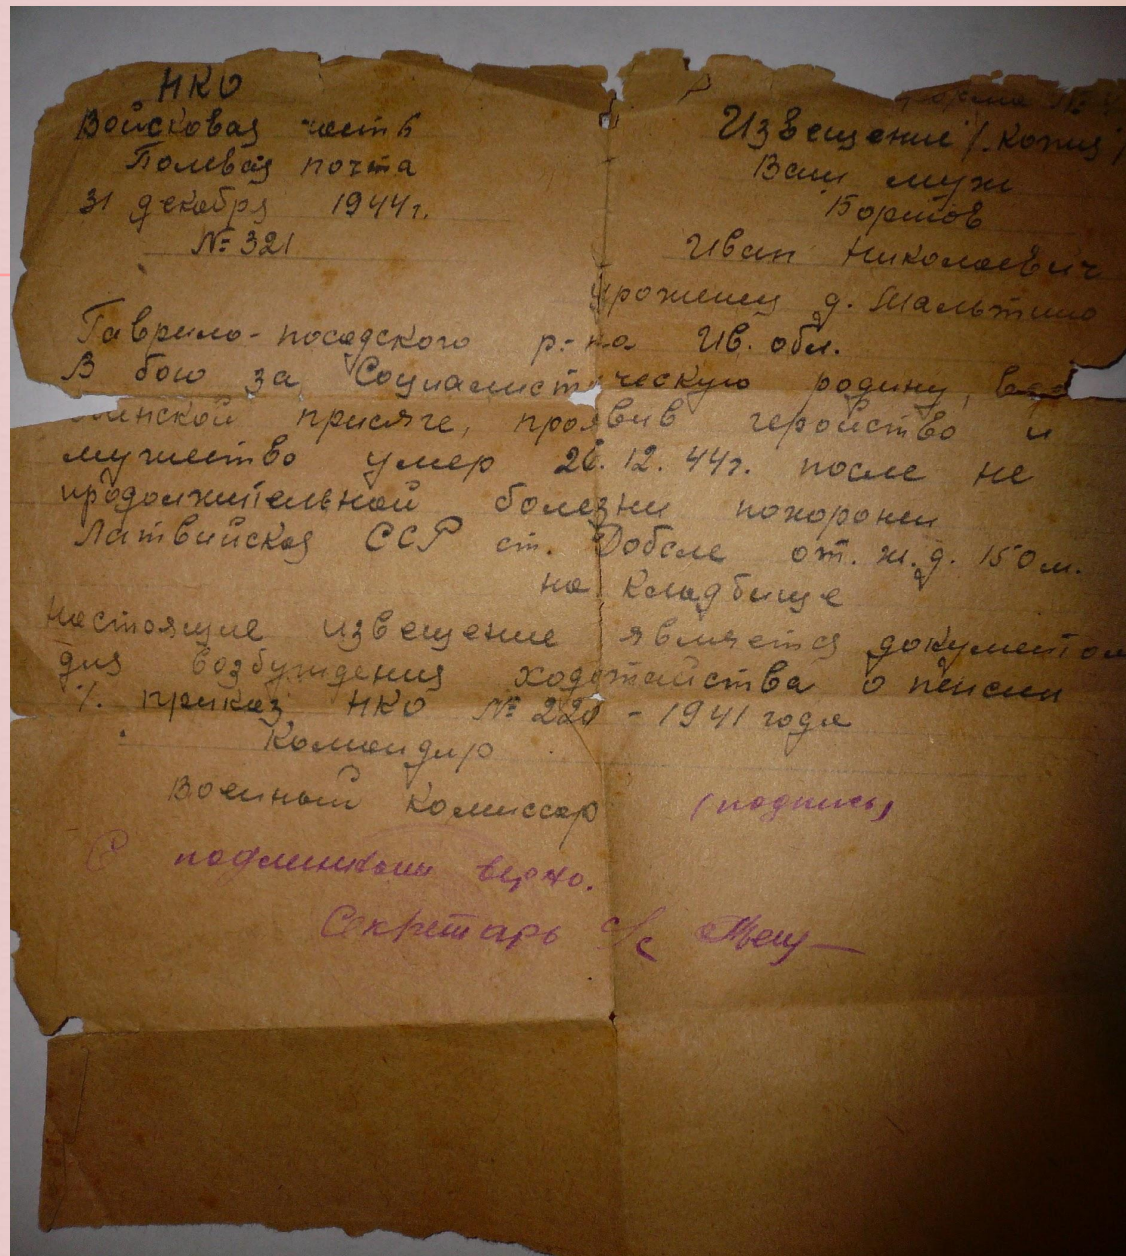 НКО
Войсковая часть
Полевая почта
31 декабря 1944 г.
№ 321
форма №
Извещение /. копия /
Ваш муж
Бортов
Иван Николаевич
Уроженец д. Шальтино
Гаврило-посадского р-на Ив. обл.
В бою за Социалистическую родину,
присяге, проявив геройство и
мужество умер 26.12.44г. после не
продолжительной болезни похоронен
Латвийская ССР ст. Добеле от. ж.д. 150 м.
на кладбище
Настоящие извещение является документом
для возбуждения ходотайства о пенсии
/. приказ НКО № 220 - 1941 года
Командир
Военный комиссар (подпись)
С подлинным верно.
Секретарь с/с